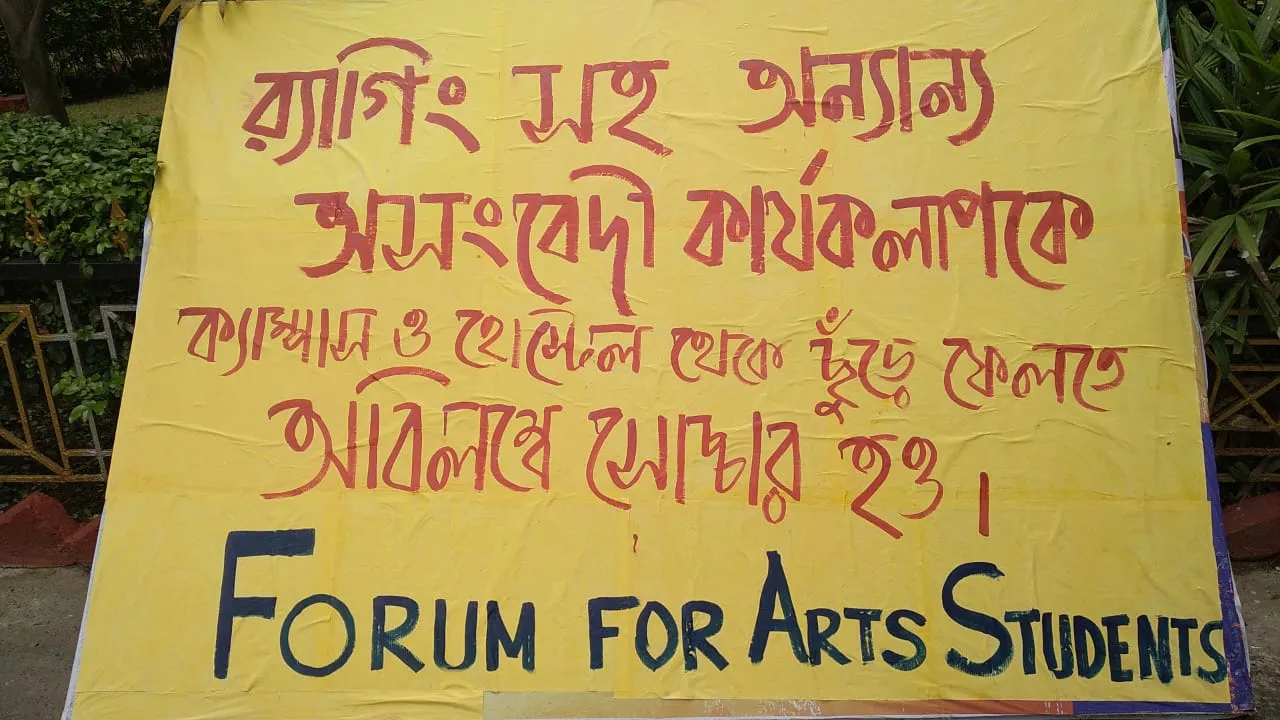 র‍্যাগিং সহ অন্যান্য
অসংবেদী কার্যকলাপকে
ক্যাম্পাস ও হোস্টেল থেকে ছুঁড়ে ফেলতে
অবিলম্বে সোচ্চার হও।
FORUM FOR ARTS STUDENTS